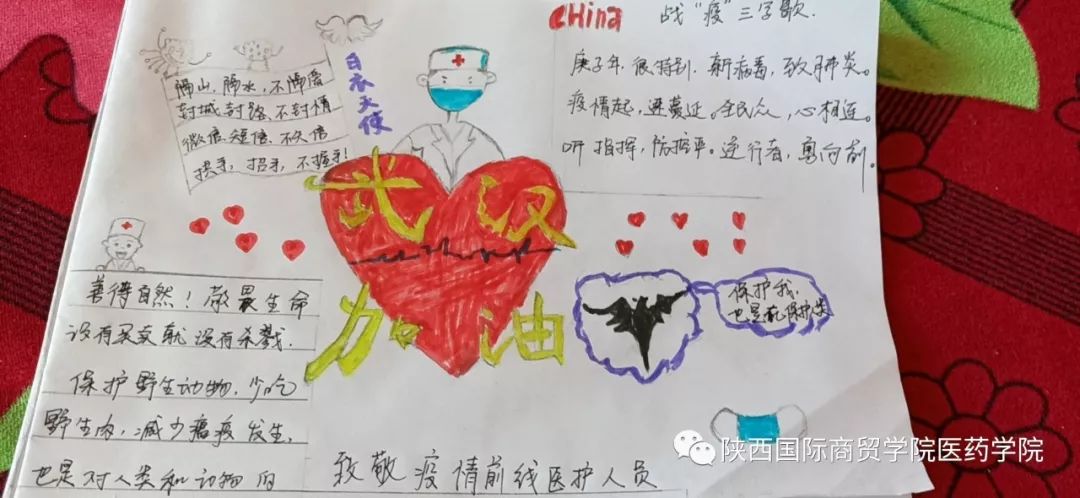 China 战“疫”三字歌.
庚子年很特别.新病毒,致肺炎。
疫情起,迅蔓延。全民众,心相连。
听指挥,防控严。逆行者,勇向前。
隔山,隔水,不隔爱
封城封路,不封情
微信,短信,不失信
拱手,招手,不握手!
白衣天使
武汉
加油
善待自然!敬畏生命
没有买卖就没有杀戮.
保护野生动物,少吃
野生肉,减少瘟疫发生,
也是对人类和动物的
保护我,
也是在保护人类
致敬疫情前线医护人员
陕西国际商贸学院医药学院